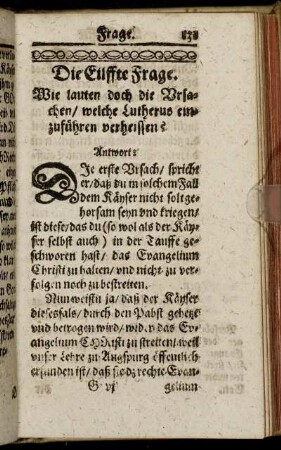 Frage. 131
Die Eilffte Frage.
Wie lauten doch die Vrsa-
chen/ welche Lutherus ein-
zuführen verheissen?
Antwort:
DIe erste Vrsach/ spricht
er/ daß du in solchem Fall
dem Käyser nicht solt ge-
horsam seyn vnd kriegen/
ist diese/ das du (so wol als der Käy-
ser selbst auch) in der Tauffe ge-
schworen hast/ das Evangelium
Christi zu halten/ vnd nicht zu ver-
folgen noch zu bestreiten.
Nun weistu ja/ daß der Käyser
diesesfals/ durch den Pabst gehetzt
vnd betrogen wird/ wider das Ev-
angelium Christi zu streiten/ weil
vnser Lehre zu Augspurg öffentlich
erfunden ist/ daß sie das rechte Evan-
G vj gelium